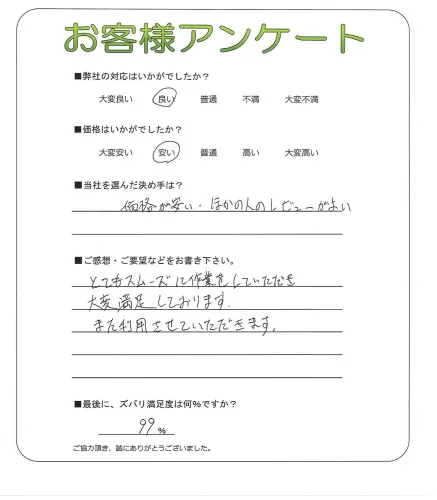 お客様アンケート
■弊社の対応はいかがでしたか？
大変良い 良い 普通 不満 大変不満
■価格はいかがでしたか？
大変安い 安い 普通 高い 大変高い
■当社を選んだ決め手は？
価格が安い・ほかの人のレビューがよい
■ご感想・ご要望などをお書き下さい。
とてもスムーズに作業をしていただき
大変満足しております。
また利用させていただきます。
■最後に、ズバリ満足度は何％ですか？
99%
ご協力頂き、誠にありがとうございました。